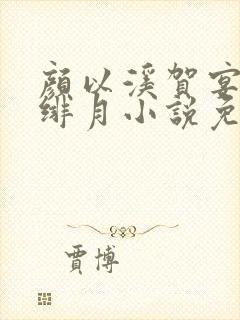 顏以溪賀宴
緋月小說免
賈博